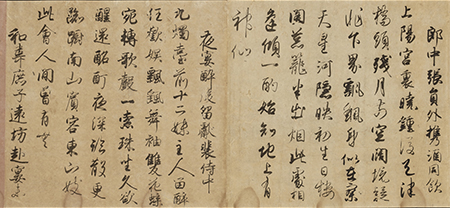 郎中張員外携酒同傾
上陽宮裏曉鐘後天津
橋頭殘月前空闊境疑
非下界飄飄身似在寥
天星河隱映初生日樓
閣蔥蘢半出烟此處相
逢傾一醆始知地上有
神仙
夜宴醉後留獻裴侍中
九燭臺前十二姝主人留醉
任歡娛飄颻舞袖雙飛蝶
宛轉歌聲一索珠坐久欲
醒還酩酊夜深初散更
踟躕南山賓客東山妓
此會人間曾有無
和韋庶子遠坊赴宴未